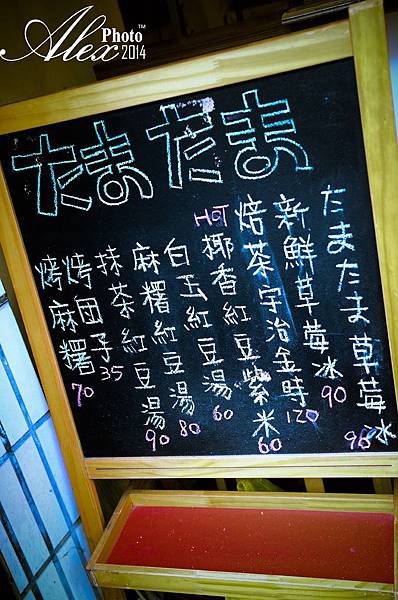 Alex Photo™ 2014
たまたま
たまたま草莓冰
新鮮草莓冰 90
焙茶宇治金時 120
HOT
椰香紅豆紫米 60
白玉紅豆湯 60
麻糬紅豆湯 80
抹茶紅豆湯 90
烤団子 35
烤麻糬 70